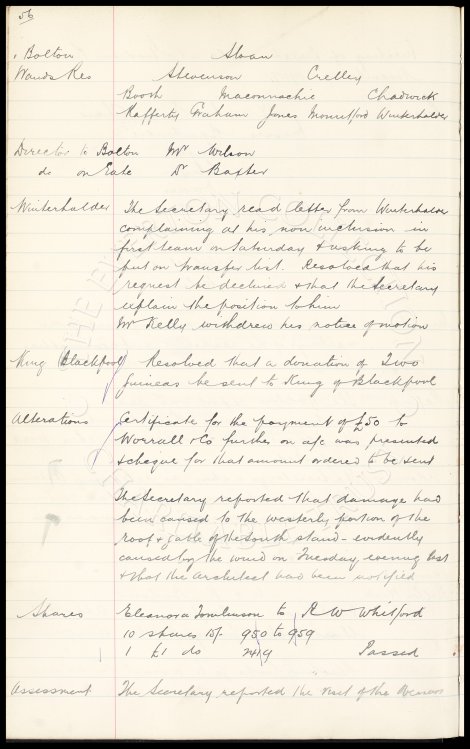 56
Bolton Sloan
Wands Res Stevenson Crelley
Booth Maconnachie Chadwick
Rafferty Graham Jones Mountford Winterhalder
Director to Bolton Mr Wilson
do on Gate Dr Baxter
Winterhalder The Secretary read letter from Winterhalder
complaining of his non inclusion in
first team on Saturday & asking to be
put on transfer list. Resolved that his
request be declined & that the Secretary
explain the position to him
Mr Kelly withdrew his notice of motion
King (Blackpool) Resolved that a donation of Two
Guineas be sent to King of Blackpool
Alterations Certificate for the payment of £50 to
Worrall & Co further on a/c was presented
& cheque for that amount ordered to be sent
The Secretary reported that damage had
been caused to the westerly portion of the
roof & gable of the South stand - evidently
caused by the wind on Tuesday evening last
& that the architect had been notified
Shares Eleanora Tomlinson to R W Whitford
10 shares 15/- 950 to 959
1 £1 do Passed
Assessment The Secretary reported the visit of the